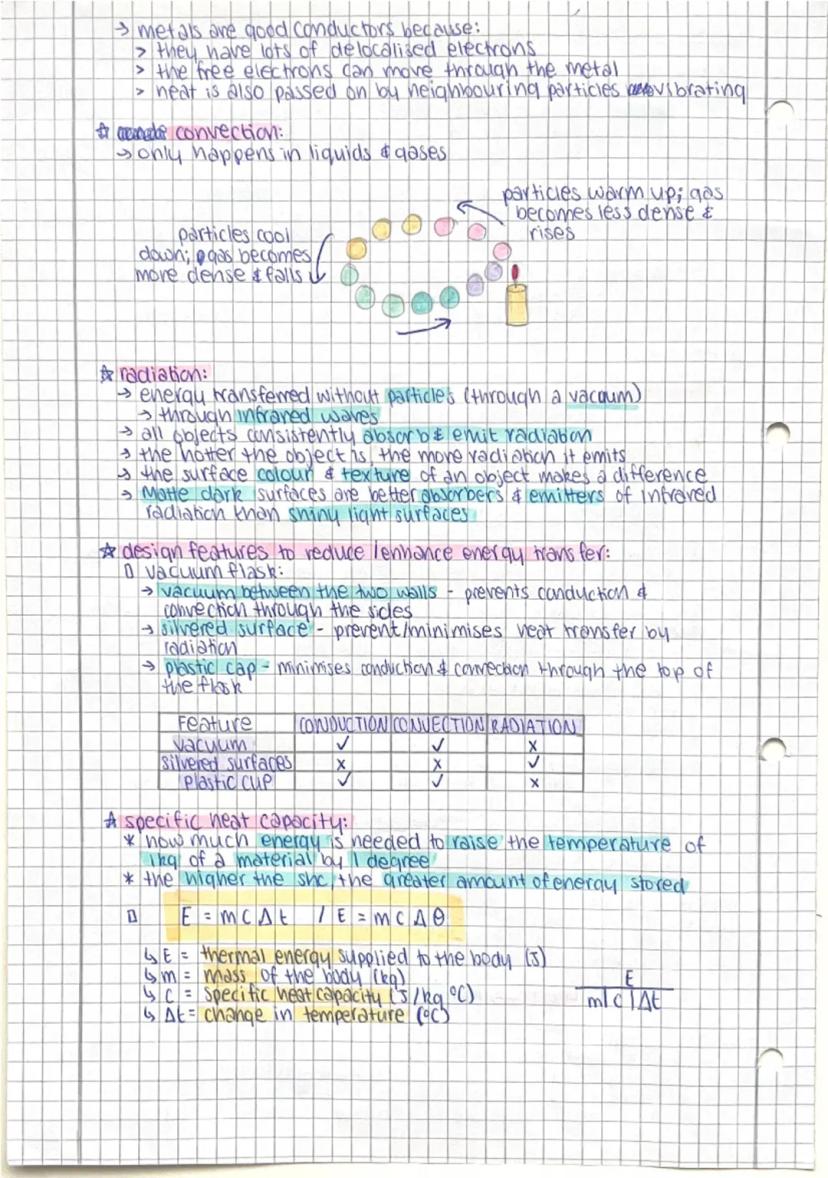 → metals are good conductors because:
> they have lots of delocalised electrons
> the free electrons can move through the metal
> heat is also passed on by neighbouring particles vibrating
☆ convection:
→ only happens in liquids & gases
particles warm up; gas
becomes less dense &
rises
particles cool
down; gas becomes
more dense & falls
☆ radiation:
→ energy transferred without particles (through a vacuum)
→ through infrared waves
→ all objects consistently absorb & emit radiation
→ the hotter the object is, the more radiation it emits
→ the surface colour & texture of an object makes a difference
→ Matte dark surfaces are better absorbers & emitters of infrared
radiation than shiny light surfaces
☆ design features to reduce/enhance energy transfer:
▯ vacuum flask:
→ vacuum between the two walls - prevents conduction &
convection through the sides
→ silvered surface - prevent/minimises heat transfer by
radiation
→ plastic cap - minimises conduction & convection through the top of
the flask
Feature CONDUCTION CONVECTION RADIATION
vacuum ✓ ✓ x
silvered surfaces x x ✓
Plastic cup ✓ ✓ x
☆ specific heat capacity:
* how much energy is needed to raise the temperature of
1kg of a material by 1 degree
* the higher the shc, the greater amount of energy stored
▯ E = m c Δ t / E = m c Δ θ
↳ E = thermal energy supplied to the body (J)
↳ m = mass of the body (kg)
↳ C = specific heat capacity (J/kg °C)
↳ Δt = change in temperature (°C)
E
m|c|Δt